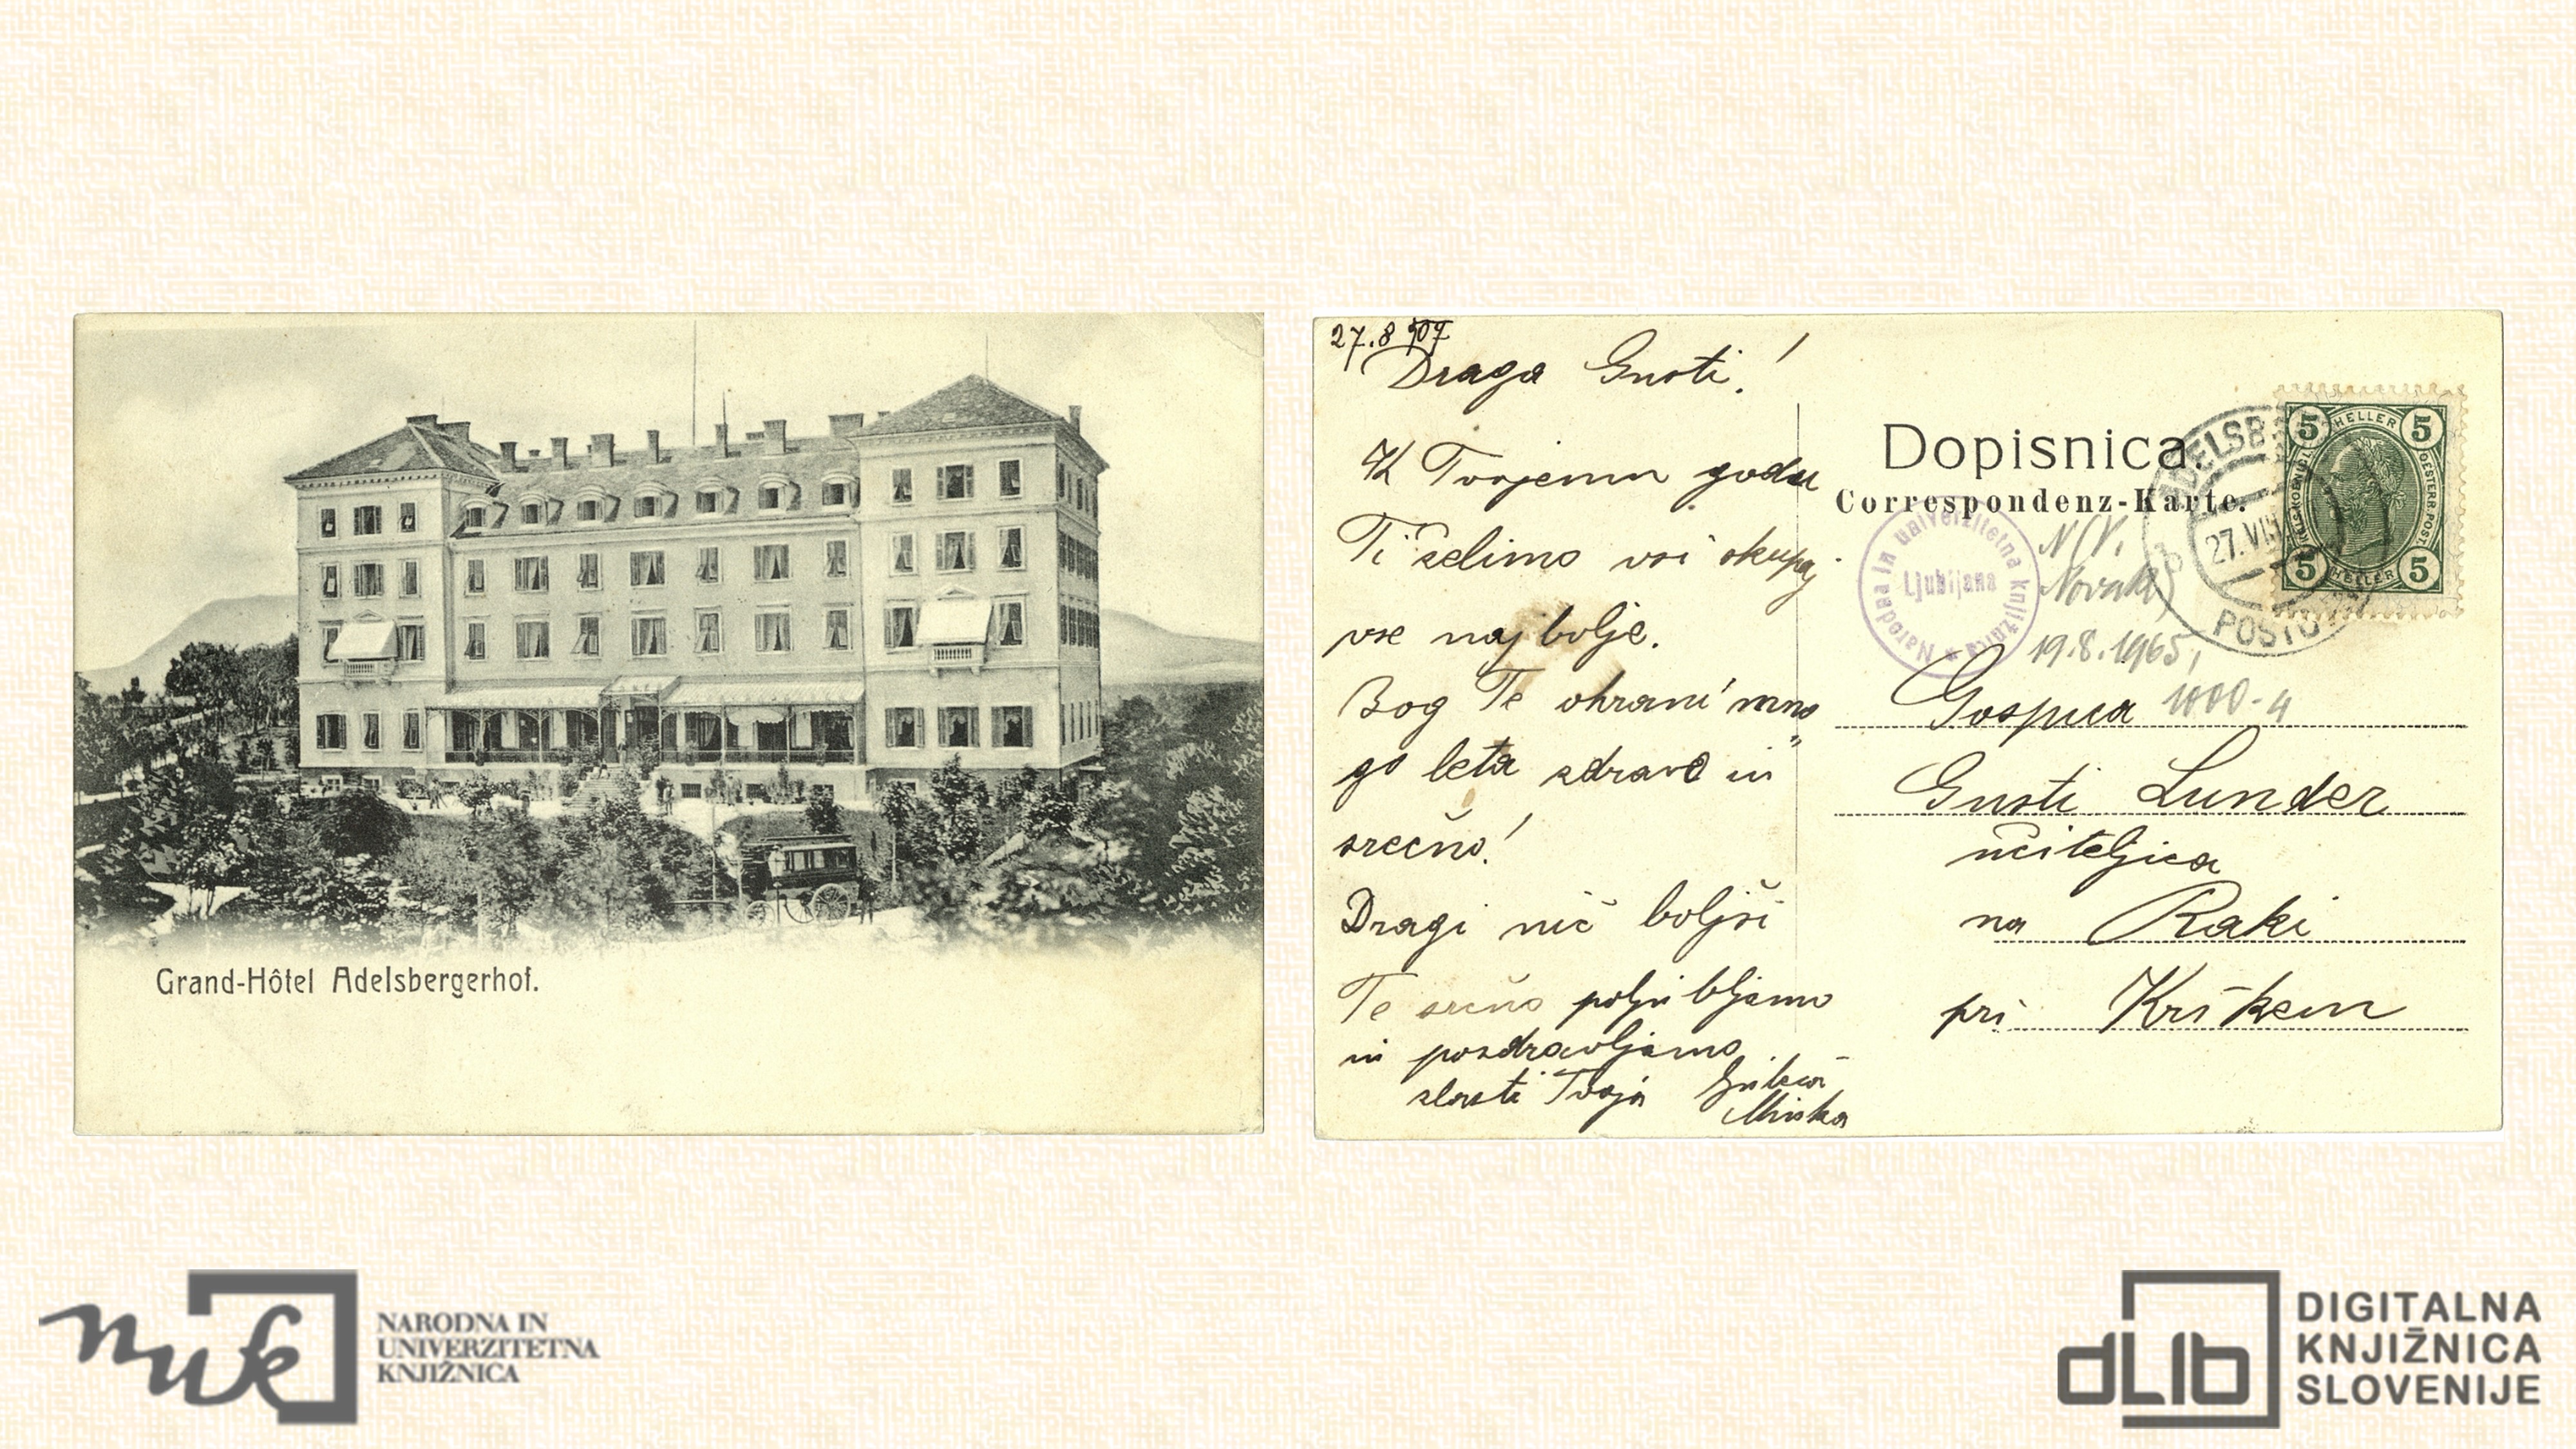 Grand-Hôtel Adelsbergerhof.
27.8 907
Draga Gusti!
K Tvojemu godu
Ti želimo vsi skupaj
vse najbolje.
Bog Te ohrani mno
go leta zdravo in
srečno!
Dragi nič boljši
Te srčno poljubljamo
in pozdravljamo
zlasti Tvoja
Minka
Dopisnica.
Correspondenz-Karte.
Narodna in univerzitetna knjižnica
Ljubljana
N(V.
Novak)
19.8.1965,
1000-4
ADELSB
27.VIII
POSTO
5 HELLER 5
5 HELLER 5
Gospica
Gusti Lunder
učiteljica
na Raki
pri Krškem
nuk
NARODNA IN
UNIVERZITETNA
KNJIŽNICA
dLib
DIGITALNA
KNJIŽNICA
SLOVENIJE